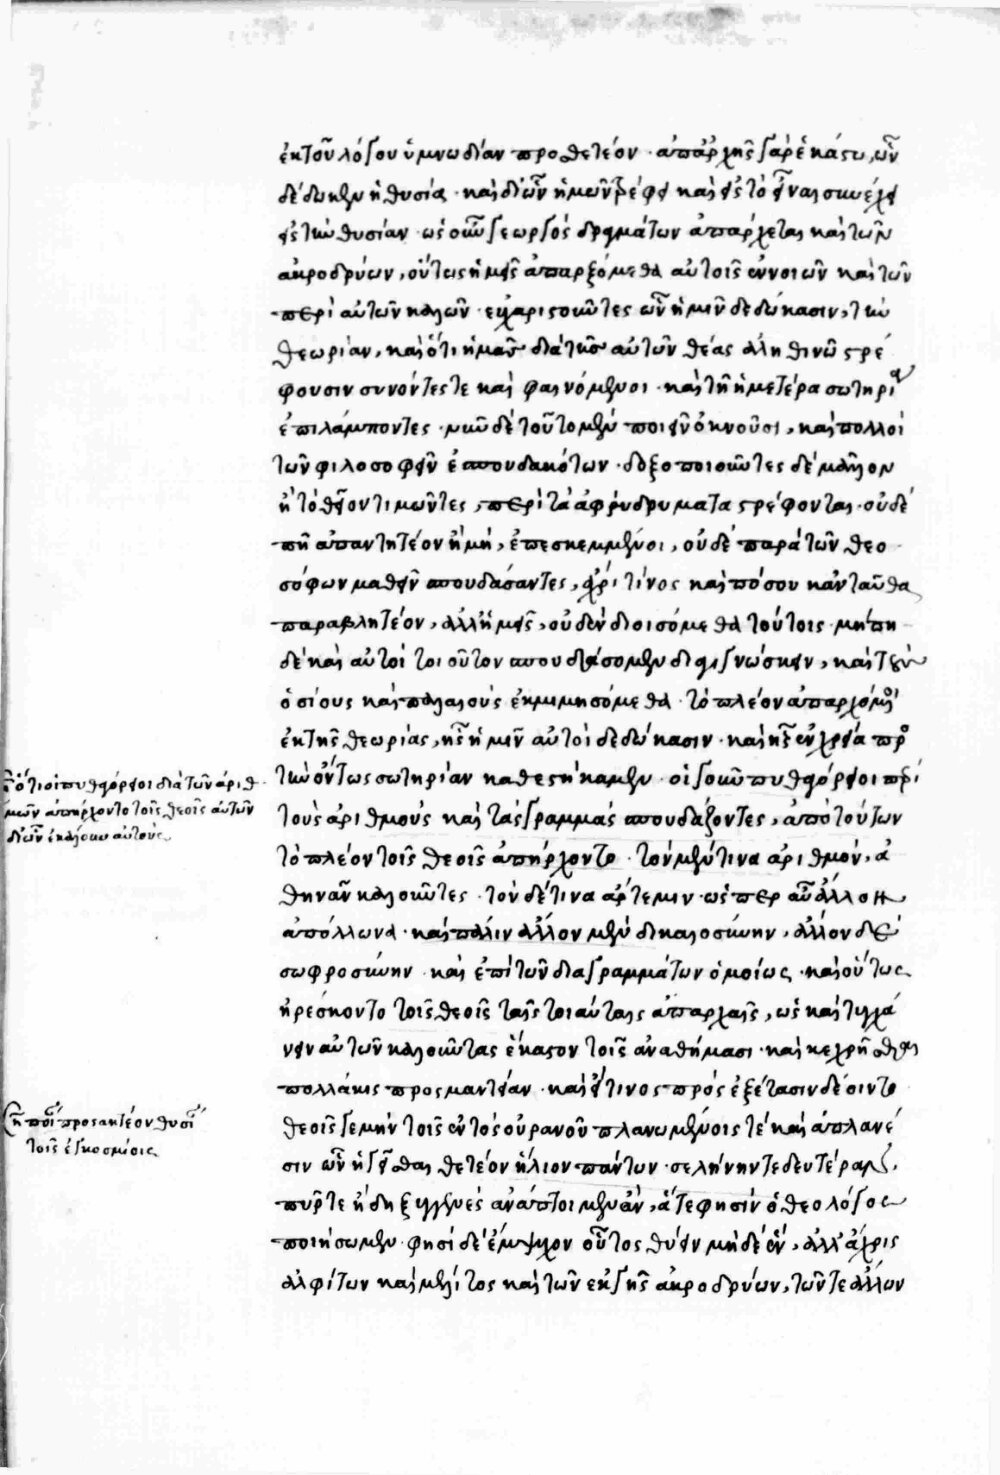 ἐκ τοῦ λόγου ὑμνωδίαν προσθετέον· ἀπαρχὴς γὰρ ἑκάστω, ὧν
δέδωκεν ἡ θυσία· καὶ δι' ὧν ἡμῶν τρέφει καὶ εἰς τὸ εἶναι συνέχει
εἰς τὴν θυσίαν· ὡς οὖν γεωργὸς δραγμάτων ἀπάρχεται καὶ τῶν
ἀκροδρύων, οὕτως ἡμεῖς ἀπαρξόμεθα αὐτοῖς ἐννοιῶν καὶ τῶν
περὶ αὐτῶν καλῶν· εὐχαριστοῦντες ὧν ἡμῖν δεδώκασιν, τὴν
θεωρίαν, καὶ ὅτι ἡμᾶς διὰ τῆς αὐτῶν θέας ἀληθινῶς τρέ
φουσιν συνόντες τε καὶ φαινόμενοι· καὶ τῆ ἡμετέρα σωτηρία
ἐπιλάμποντες· νῦν δὲ τοῦτο μὲν ποιεῖν ὀκνοῦσι, καὶ πολλοὶ
τῶν φιλοσοφεῖν ἐσπουδακότων· δοξοποιοῦντες δὲ μᾶλλον
ἢ τὸ θεῖον τιμῶντες, περὶ τὰ ἀφιδρύματα στρέφονται· οὐδὲ
πῆ ἀπαντητέον ἢ μή, ἐπεσκεμμένοι, οὐδὲ παρὰ τῶν θεο
σόφων μαθεῖν σπουδάσαντες, ἄχρι τίνος καὶ πόσου κἀνταῦθα
παραβλητέον, ἀλλ' ἡμεῖς, οὐδὲν διοισόμεθα τούτοις· μήπη
δὲ καὶ αὐτοὶ τοιοῦτον σπουδάσομεν διαγινώσκειν, καὶ τοὺς
ὁσίους καὶ παλαιοὺς ἐκμιμησόμεθα· τὸ πλέον ἀπαρχόμενοι
ἐκ τῆς θεωρίας, ἧς ἡμῖν αὐτοὶ δεδώκασιν· καὶ ἧς ἐν χρεία πρὸς
τὴν ὄντως σωτηρίαν καθεστήκαμεν· οἱ γοῦν πυθαγόρειοι περὶ
τοὺς ἀριθμοὺς καὶ τὰς γραμμὰς σπουδάζοντες, ἀπὸ τούτων
τὸ πλέον τοῖς θεοῖς ἀπήρχοντο· τὸν μέν τινα ἀριθμόν, ἀ
θηνᾶν καλοῦντες· τὸν δέ τινα ἄρτεμιν· ὥσπερ αὖ ἄλλον
ἀπόλλωνα· καὶ πάλιν ἄλλον μὲν δικαιοσύνην, ἄλλον δὲ
σωφροσύνην· καὶ ἐπὶ τῶν διαγραμμάτων ὁμοίως· καὶ οὕτως
ἠρέσκοντο τοῖς θεοῖς ταῖς τοιαύταις ἀπαρχαῖς, ὡς καὶ τυγχά
νειν αὐτῶν καλοῦντας ἕκαστον τοῖς ἀναθήμασι· καὶ κεχρῆσθαι
πολλάκις πρὸς μαντείαν· καὶ εἴ τινος πρὸς ἐξέτασιν δέοιντο
θεοῖς γε μὴν τοῖς ἐντὸς οὐρανοῦ πλανωμένοις τὲ καὶ ἀπλανέ
σιν ὧν ἡγεῖσθαι θετέον ἥλιον πάντων· σελήνην τε δευτέραν,
πῦρ τε ἤδη ξυγγενὲς ἀνάπτοιμεν ἄν, ἅ τε φησὶν ὁ θεολόγος
ποιήσωμεν· φησὶ δὲ ἔμψυχον οὗτος θύειν μηδὲ ἕν, ἀλλ' ἄχρις
ἀλφίτων καὶ μέλιτος καὶ τῶν ἐκ γῆς ἀκροδρύων, τῶν τε ἄλλων
ὅτι οἱ πυθαγόρειοι διὰ τῶν ἀριθ
μῶν ἀπήρχοντο τοῖς θεοῖς αὐτῶν
δι' ὧν ἐκάλουν αὐτούς
προσακτέον θυσί
τοῖς ἐγκοσμίοις